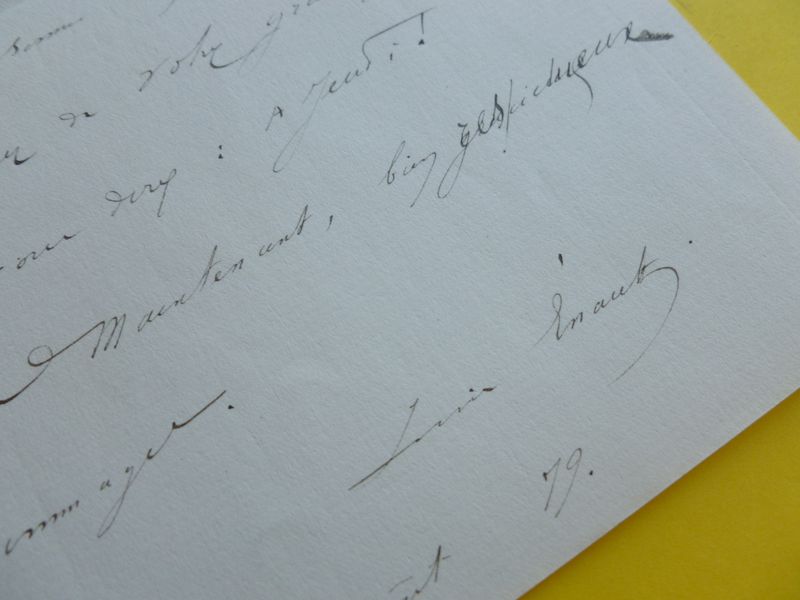 de votre
dire : A Jeudi !
Maintenant, bien respectueux
hommages.
Louis Énault.
79.